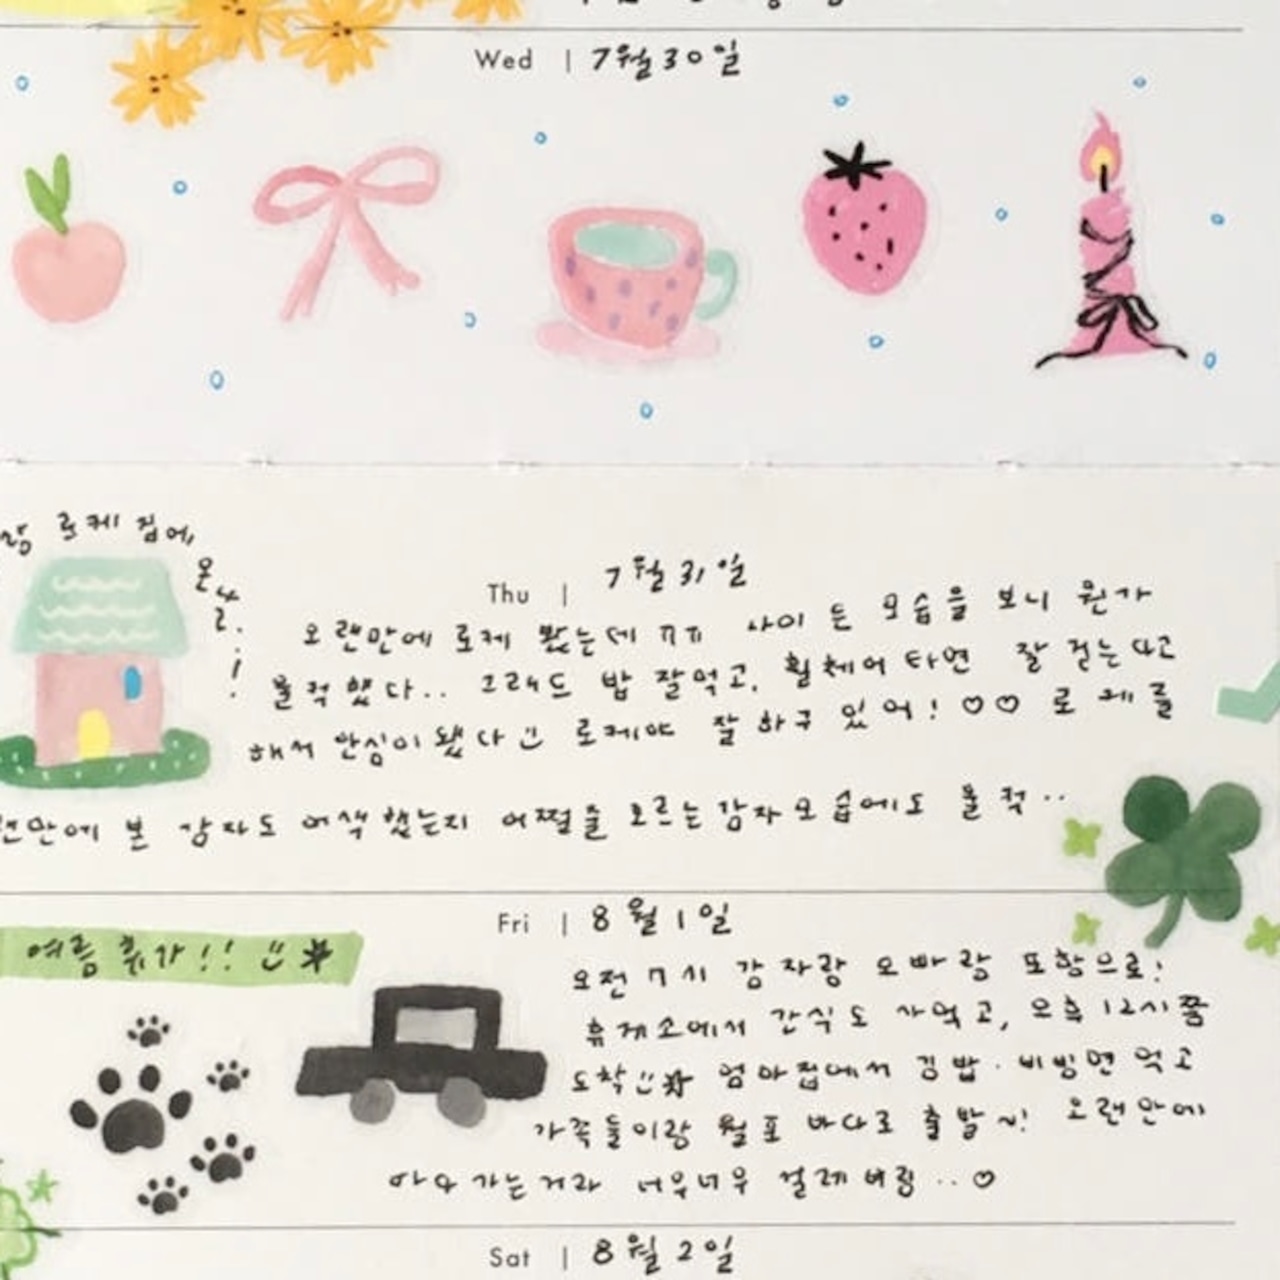 Wed | 7월 30일
랑 로케 집에
온
날!
Thu | 7월 31일
오랜만에 로케 봤는데 ㅠㅠ 나이 든 모습을 보니 뭔가
울컥했다.. 그래도 밥 잘먹고, 휠체어 타면 잘 걷는다고
해서 안심이 됐다 로케야 잘 하구 있어! ♡♡ 로케를
랜만에 본 감자도 어색했는지 어쩔줄 모르는 감자 모습에도 울컥..
Fri | 8월 1일
여름 휴가!!
오전 7시 감자랑 오빠랑 포항으로!
휴게소에서 간식도 사먹고, 오후 12시쯤
도착 엄마집에서 김밥·비빔면 먹고
가족들이랑 월포 바다로 출발~! 오랜만에
바다 가는거라 너무너무 설레버림..♡
Sat | 8월 2일